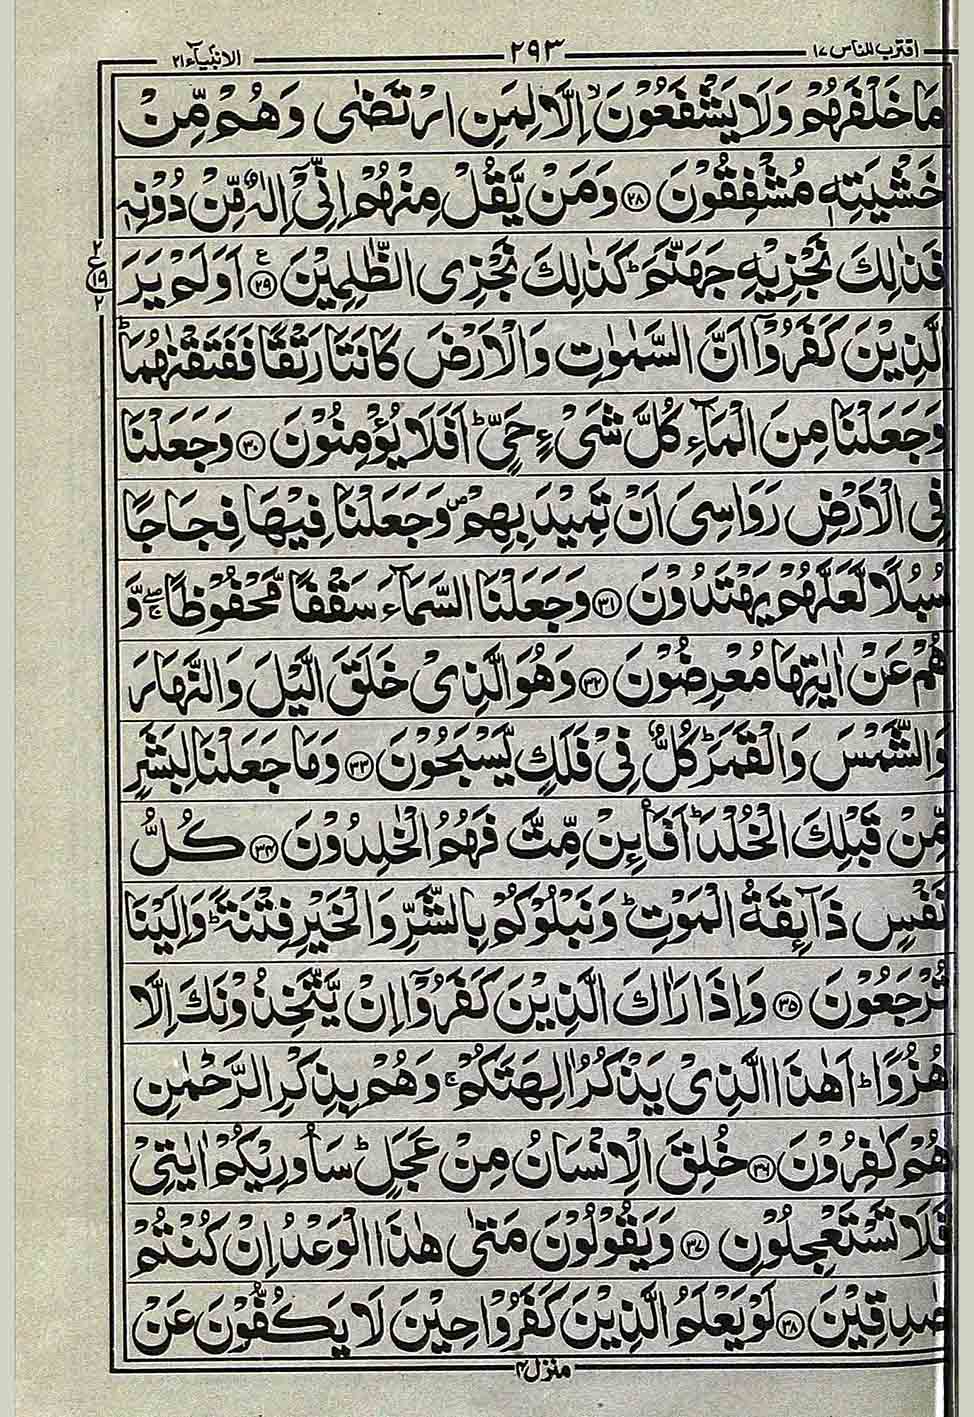 اقترب للناس ١٧ ٢٩٣ الانبیآء ٢١
مَا خَلْفَهُمْ وَلَا يَشْفَعُوْنَ ۙ اِلَّا لِمَنِ ارْتَضٰى وَهُمْ مِّنْ
خَشْيَتِهٖ مُشْفِقُوْنَ ﴿٢٨﴾ وَمَنْ يَّقُلْ مِنْهُمْ اِنِّىْٓ اِلٰهٌ مِّنْ دُوْنِهٖ
فَذٰلِكَ نَجْزِيْهِ جَهَنَّمَ ؕ كَذٰلِكَ نَجْزِى الظّٰلِمِيْنَ ﴿٢٩﴾ ع اَوَلَمْ يَرَ
٢ ع ١٩ ٢
الَّذِيْنَ كَفَرُوْٓا اَنَّ السَّمٰوٰتِ وَالْاَرْضَ كَانَتَا رَتْقًا فَفَتَقْنٰهُمَا ؕ
وَجَعَلْنَا مِنَ الْمَآءِ كُلَّ شَىْءٍ حَىٍّ ؕ اَفَلَا يُؤْمِنُوْنَ ﴿٣٠﴾ وَجَعَلْنَا
فِى الْاَرْضِ رَوَاسِىَ اَنْ تَمِيْدَ بِهِمْ ۪ وَجَعَلْنَا فِيْهَا فِجَاجًا
سُبُلًا لَّعَلَّهُمْ يَهْتَدُوْنَ ﴿٣١﴾ وَجَعَلْنَا السَّمَآءَ سَقْفًا مَّحْفُوْظًا ۖۚ وَّ
هُمْ عَنْ اٰيٰتِهَا مُعْرِضُوْنَ ﴿٣٢﴾ وَهُوَ الَّذِىْ خَلَقَ الَّيْلَ وَالنَّهَارَ
وَالشَّمْسَ وَالْقَمَرَ ؕ كُلٌّ فِىْ فَلَكٍ يَّسْبَحُوْنَ ﴿٣٣﴾ وَمَا جَعَلْنَا لِبَشَرٍ
مِّنْ قَبْلِكَ الْخُلْدَ ؕ اَفَا۟ئِنْ مِّتَّ فَهُمُ الْخٰلِدُوْنَ ﴿٣٤﴾ كُلُّ
نَفْسٍ ذَآئِقَةُ الْمَوْتِ ؕ وَنَبْلُوْكُمْ بِالشَّرِّ وَالْخَيْرِ فِتْنَةً ؕ وَاِلَيْنَا
تُرْجَعُوْنَ ﴿٣٥﴾ وَاِذَا رَاٰكَ الَّذِيْنَ كَفَرُوْٓا اِنْ يَّتَّخِذُوْنَكَ اِلَّا
هُزُوًا ؕ اَهٰذَا الَّذِىْ يَذْكُرُ اٰلِهَتَكُمْ ۚ وَهُمْ بِذِكْرِ الرَّحْمٰنِ
هُمْ كٰفِرُوْنَ ﴿٣٦﴾ خُلِقَ الْاِنْسَانُ مِنْ عَجَلٍ ؕ سَاُورِيْكُمْ اٰيٰتِىْ
فَلَا تَسْتَعْجِلُوْنِ ﴿٣٧﴾ وَيَقُوْلُوْنَ مَتٰى هٰذَا الْوَعْدُ اِنْ كُنْتُمْ
صٰدِقِيْنَ ﴿٣٨﴾ لَوْ يَعْلَمُ الَّذِيْنَ كَفَرُوْا حِيْنَ لَا يَكُفُّوْنَ عَنْ
منزل ٤